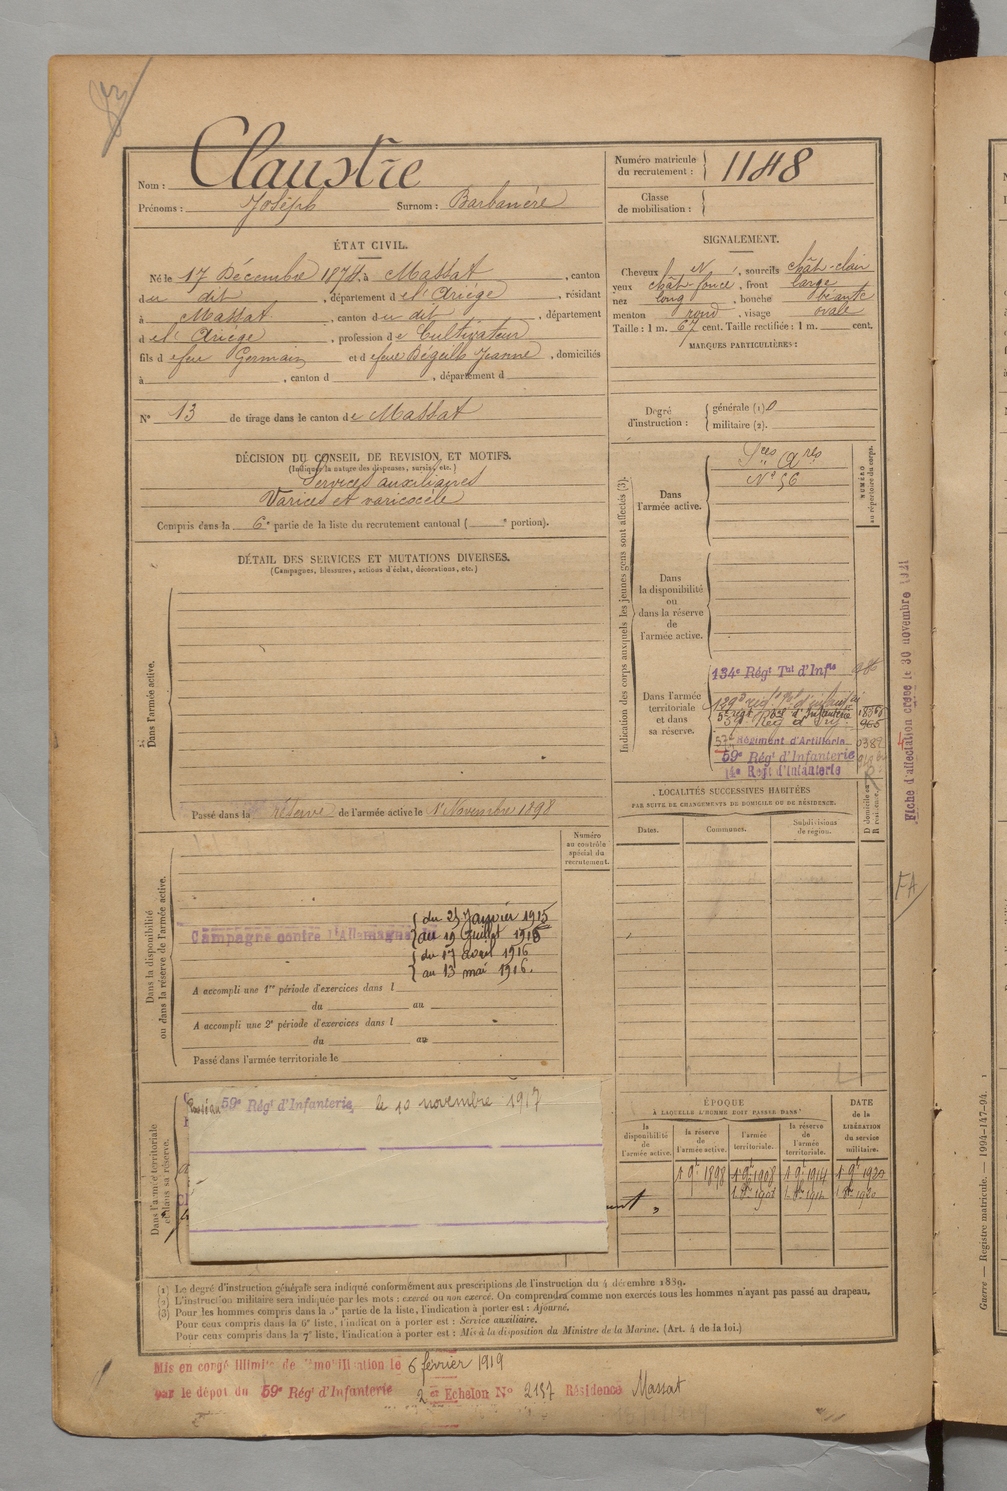 Nom : Claustre
Prénoms : Joseph Surnom : Barbanère
Numéro matricule du recrutement : 1148
Classe de mobilisation :
ÉTAT CIVIL.
Né le 17 Décembre 1874, à Massat, canton
du dit, département de l'Ariège, résidant
à Massat, canton du dit, département
de l'Ariège, profession de Cultivateur
fils de feu Germain et de feue Déguilh Jeanne, domiciliés
à , canton d , département d
N° 13 de tirage dans le canton de Massat
SIGNALEMENT.
Cheveux N, sourcils chât-clair
yeux chât foncé, front large
nez long, bouche béante
menton rond, visage ovale
Taille : 1 m. 67 cent. Taille rectifiée : 1 m. cent.
MARQUES PARTICULIÈRES :
Degré d'instruction : générale (1) 0
militaire (2).
DÉCISION DU CONSEIL DE REVISION ET MOTIFS.
(Indiquer la nature des dispenses, sursis, etc.)
Services auxiliaires
Varices et varicocèle
Compris dans la 6e partie de la liste du recrutement cantonal ( e portion).
DÉTAIL DES SERVICES ET MUTATIONS DIVERSES.
(Campagnes, blessures, actions d'éclat, décorations, etc.)
Dans l'armée active.
Passé dans la réserve de l'armée active le 1er Novembre 1898
Indication des corps auxquels les jeunes gens sont affectés (3).
NUMÉRO au répertoire du corps.
Dans l'armée active.
N° 56
Dans la disponibilité ou dans la réserve de l'armée active.
Dans l'armée territoriale et dans sa réserve.
134e Régt Tal d'Infie
57e Régiment d'Artillerie
59e Régt d'Infanterie
14e Régt d'Infanterie
Fiche d'affectation créée le 30 novembre 1921
FA
LOCALITÉS SUCCESSIVES HABITÉES
PAR SUITE DE CHANGEMENTS DE DOMICILE OU DE RÉSIDENCE.
Dates. Communes. Subdivisions de région. D domicile ou R résidence.
Numéro au contrôle spécial du recrutement.
Dans la disponibilité ou dans la réserve de l'armée active.
Campagne contre l'Allemagne
du 25 Janvier 1915
au 19 Juillet 1915
du 17 avril 1916
au 13 mai 1916.
A accompli une 1re période d'exercices dans l
du au
A accompli une 2e période d'exercices dans l
du au
Passé dans l'armée territoriale le
Dans l'armée territoriale et dans sa réserve.
59e Régt d'Infanterie, le 10 novembre 1917
ÉPOQUE
À LAQUELLE L'HOMME DOIT PASSER DANS
la disponibilité de l'armée active. la réserve de l'armée active. l'armée territoriale. la réserve de l'armée territoriale.
DATE de la LIBÉRATION du service militaire.
1 9bre 1898 1 9bre 1908 1 9bre 1914 1 9bre 1920
(1) Le degré d'instruction générale sera indiqué conformément aux prescriptions de l'instruction du 4 décembre 1889.
(2) L'instruction militaire sera indiquée par les mots : exercé ou non exercé. On comprendra comme non exercés tous les hommes n'ayant pas passé au drapeau.
(3) Pour les hommes compris dans la 5e partie de la liste, l'indication à porter est : Ajourné.
Pour ceux compris dans la 6e liste, l'indication à porter est : Service auxiliaire.
Pour ceux compris dans la 7e liste, l'indication à porter est : Mis à la disposition du Ministre de la Marine. (Art. 4 de la loi.)
Mis en congé illimité de démobilisation le 6 février 1919
par le dépôt du 59e Régt d'Infanterie 2e Echelon N° 2137 Résidence Massat
Guerre — Registre matricule. — 1994-147-94.